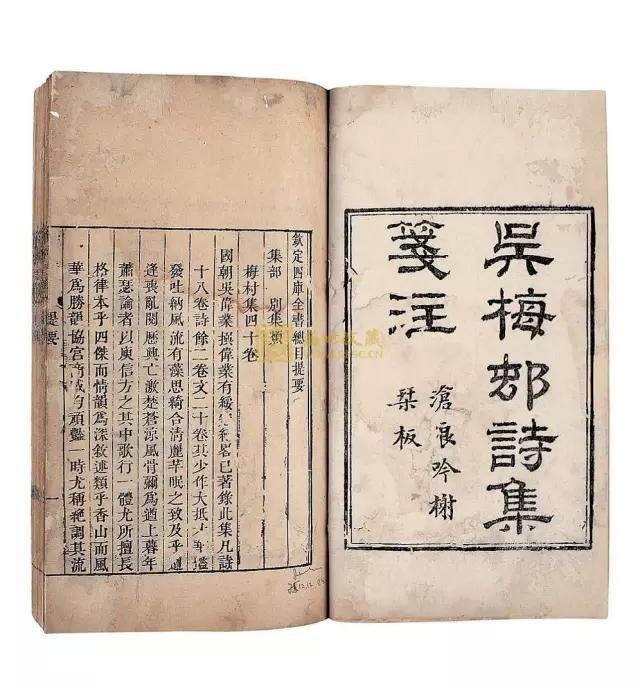 吳梅邨詩集
箋注
滄浪吟榭
栞板
欽定四庫全書總目提要
集部 別集類
梅村集四十卷
國朝吳偉業撰偉業有綏寇紀略已著錄此集凡詩
十八卷詩餘二卷文二十卷其少作大抵才華豔
發吐納風流有藻思綺合清麗芊眠之致及乎遭
逢喪亂閱歷興亡激楚蒼涼風骨彌爲遒上暮年
蕭瑟論者以庾信方之其中歌行一體尤所擅長
格律本乎四傑而情韻爲深敘述類乎香山而風
華爲勝韻協宮商感均頑豔一時尤稱絶調其流
提要
一